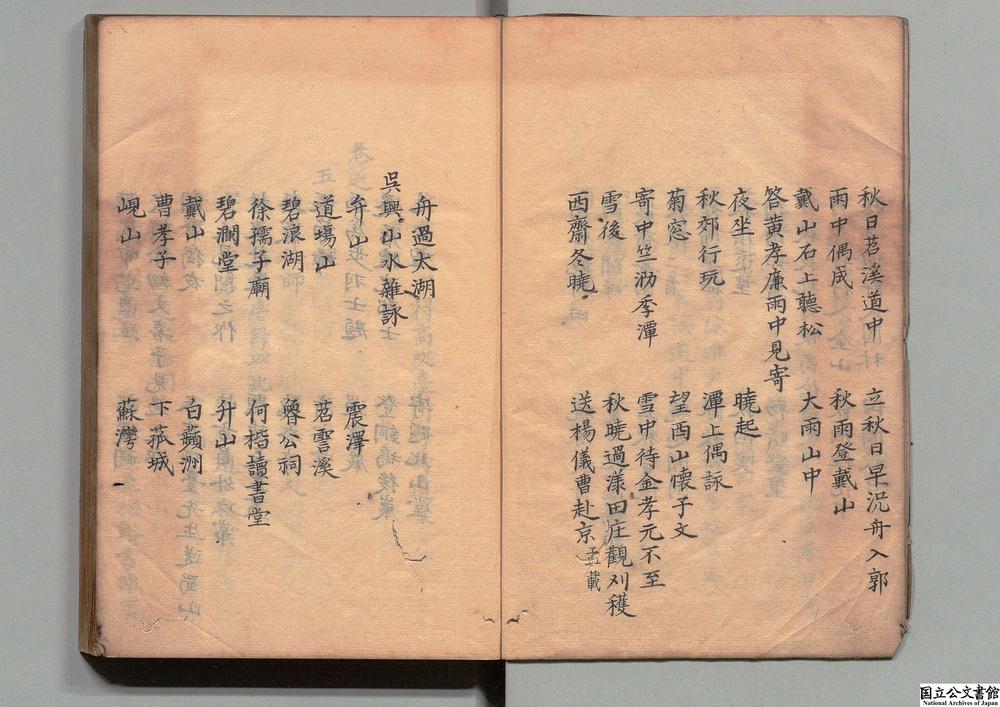 秋日苕溪道中　立秋日早泛舟入郭
雨中偶成　秋雨登戴山
戴山石上聽松　大雨山中
答黃孝廉雨中見寄
夜坐　曉起
秋郊行玩　潭上偶詠
菊窓　望西山懷子文
寄中竺泐季潭　雪中待金孝元不至
雪後　秋曉過漾田庄觀刈穫
西齋冬曉　送楊儀曹赴京 孟載
舟過太湖
吳興山水雜詠
弁山　震澤
道塲山　苕霅溪
碧浪湖　魯公祠
徐孺子廟　何楷讀書堂
碧瀾堂　升山
戴山　白蘋洲
曹孝子　下菰城
峴山　蘇灣
国立公文書館
National Archives of Japan